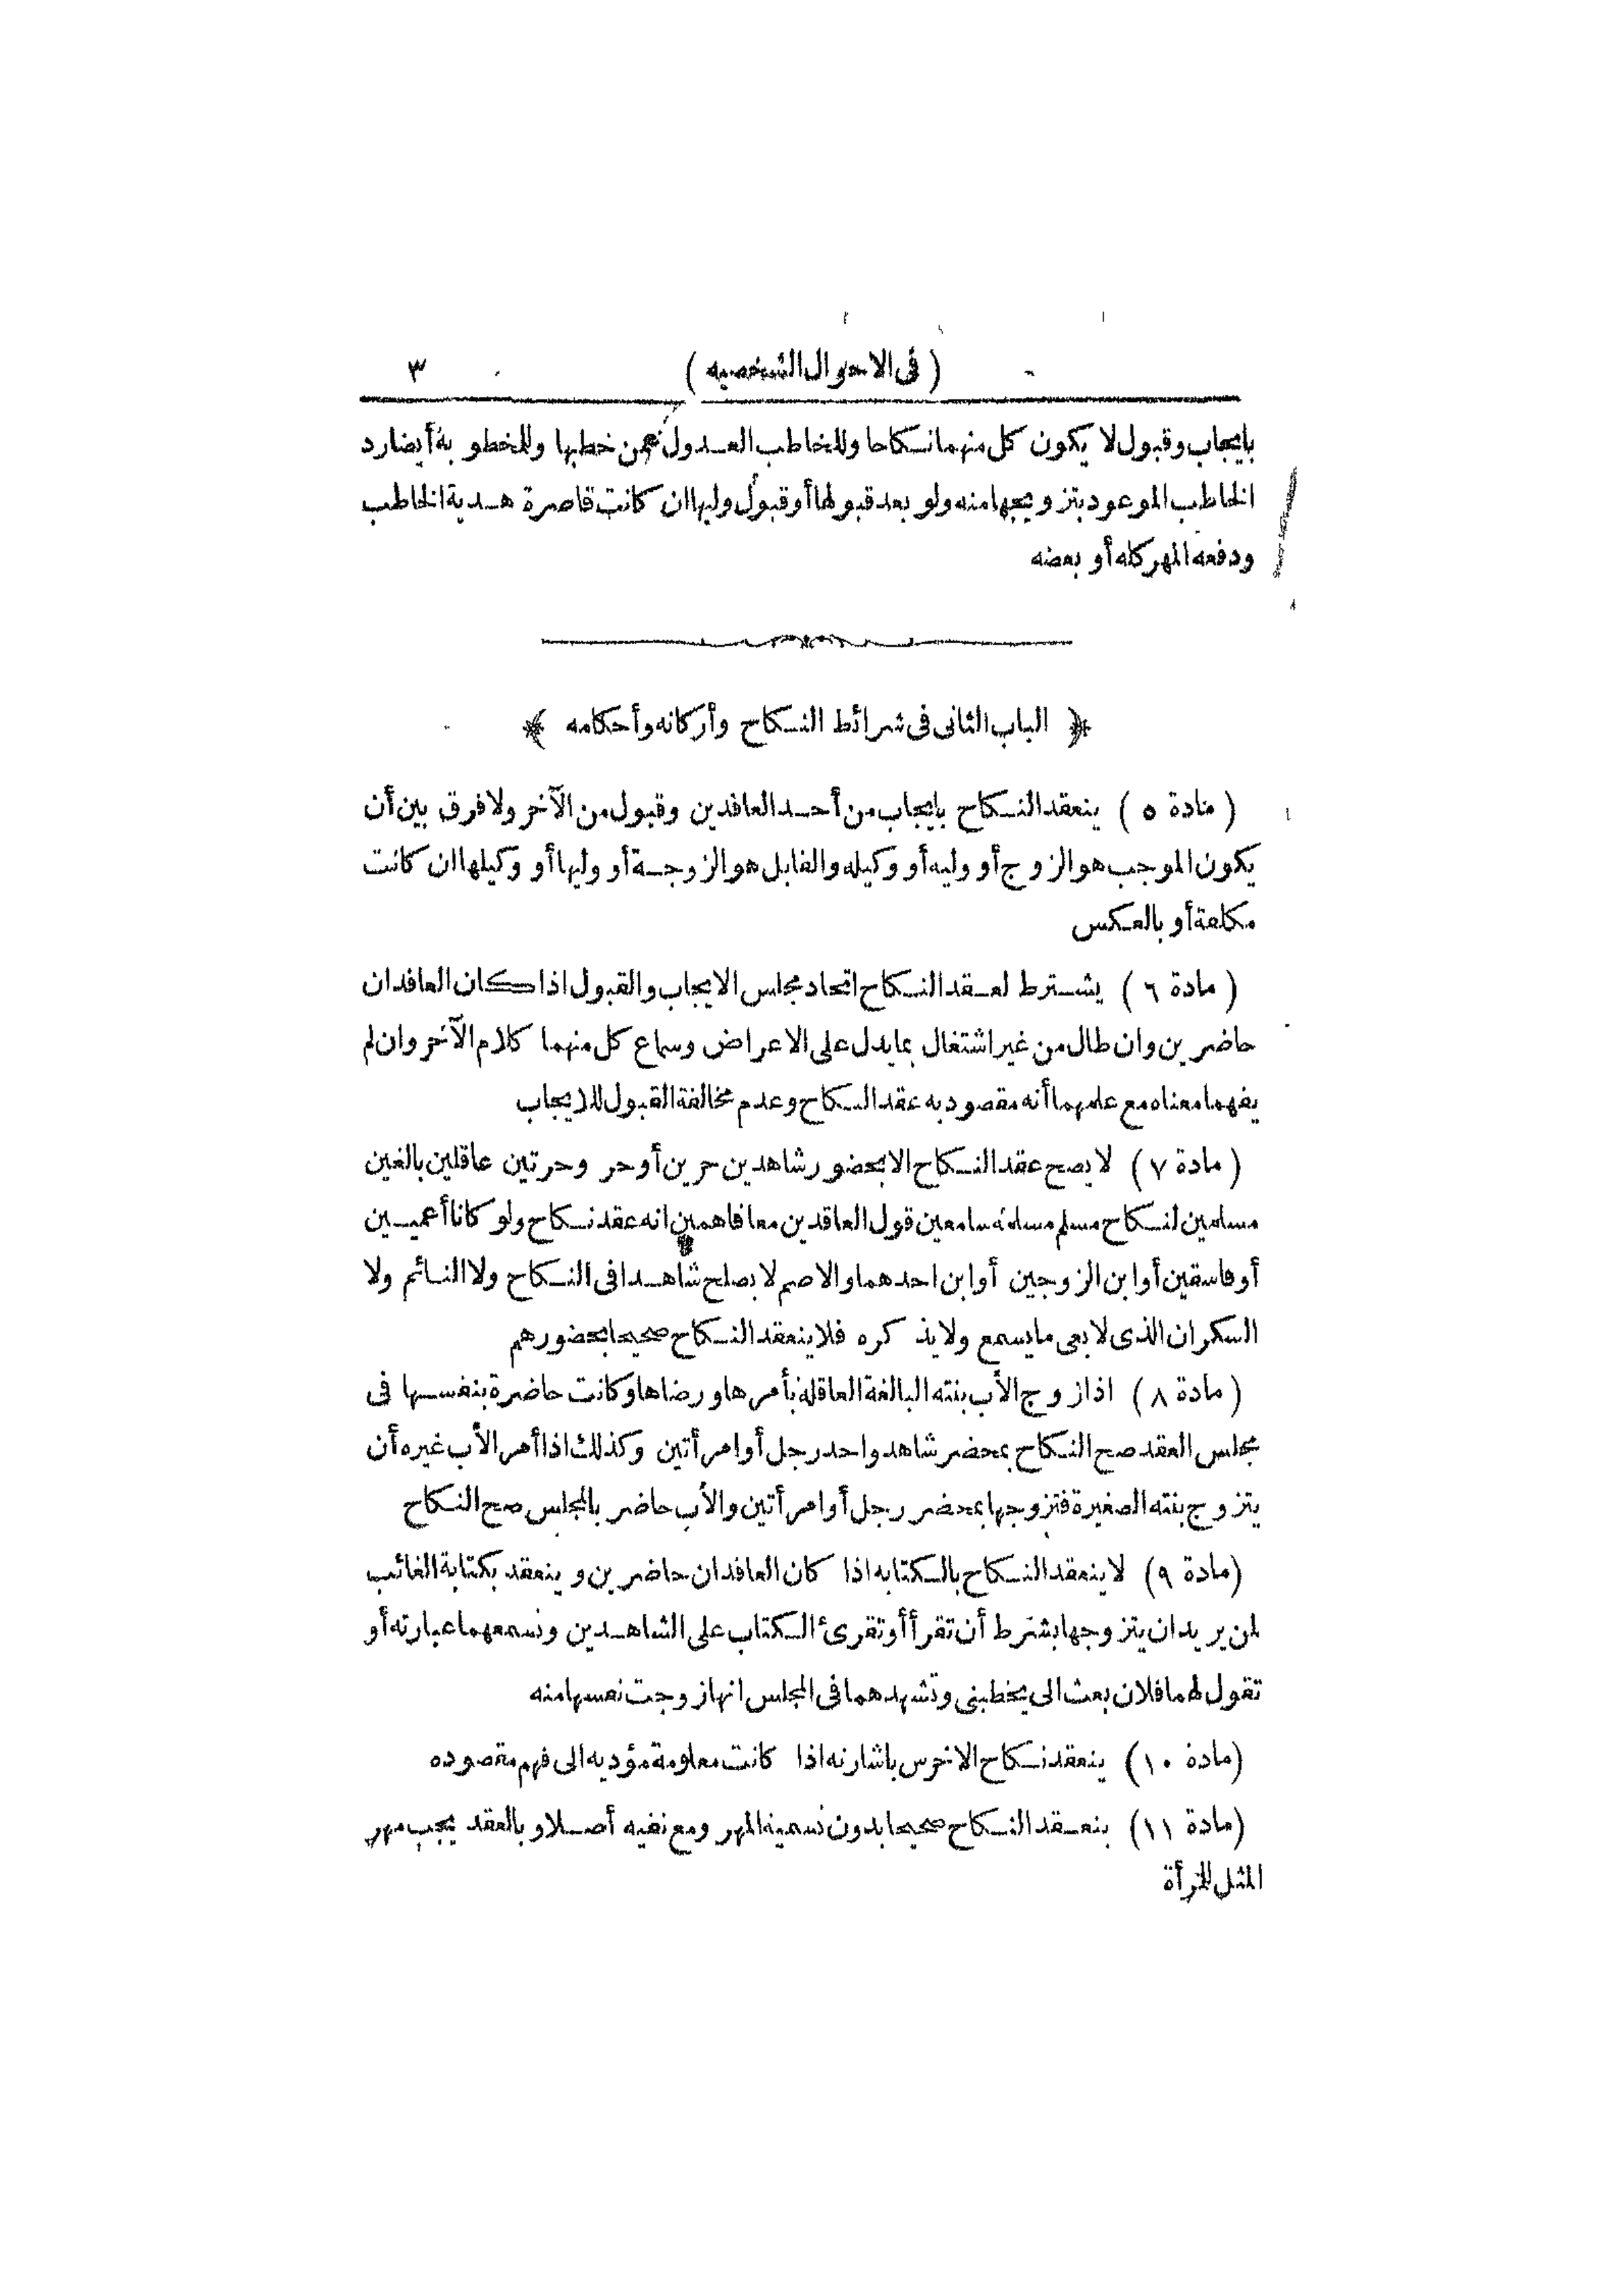 ( فى الاحوال الشخصيه ) ٣
بايجاب وقبول لا يكون كل منهما نكاحا وللخاطب العدول عمن خطبها وللمخطوبة أيضا رد
الخاطب الموعود بتزويجها منه ولو بعد قبولها أو قبول وليها ان كانت قاصرة هدية الخاطب
ودفعه المهر كله أو بعضه
﴿ الباب الثانى فى شرائط النكاح وأركانه وأحكامه ﴾
( مادة ٥ ) ينعقد النكاح بايجاب من أحد العاقدين وقبول من الآخر ولا فرق بين أن
يكون الموجب هو الزوج أو وليه أو وكيله والقابل هو الزوجة أو وليها أو وكيلها ان كانت
مكلفة أو بالعكس
( مادة ٦ ) يشترط لعقد النكاح اتحاد مجلس الايجاب والقبول اذا كان العاقدان
حاضرين وان طال من غير اشتغال بما يدل على الاعراض وسماع كل منهما كلام الآخر وان لم
يفهما معناه مع علمهما أنه مقصود به عقد النكاح وعدم مخالفة القبول للايجاب
( مادة ٧ ) لا يصح عقد النكاح الا بحضور شاهدين حرين أو حر وحرتين عاقلين بالغين
مسلمين لنكاح مسلم مسلمة سامعين قول العاقدين معا فاهمين انه عقد نكاح ولو كانا أعميين
أو فاسقين أو ابن الزوجين أو ابن احدهما والاصم لا يصلح شاهدا فى النكاح ولا النائم ولا
السكران الذى لا يعى ما يسمع ولا يذكره فلا ينعقد النكاح صحيحا بحضورهم
( مادة ٨ ) اذا زوج الأب بنته البالغة العاقلة بأمرها ورضاها وكانت حاضرة بنفسها فى
مجلس العقد صح النكاح بمحضر شاهد واحد رجل أو امرأتين وكذلك اذا أمر الأب غيره أن
يتزوج بنته الصغيرة فتزوجها بمحضر رجل أو امرأتين والأب حاضر بالمجلس صح النكاح
(مادة ٩) لا ينعقد النكاح بالكتابه اذا كان العاقدان حاضرين وينعقد بكتابة الغائب
لمن يريد ان يتزوجها بشرط أن تقرأ أو تقرئ الكتاب على الشاهدين وتسمعهما عبارته أو
تقول لهما فلان بعث الى يخطبنى وتشهدهما فى المجلس انها زوجت نفسها منه
(مادة ١٠) ينعقد نكاح الاخرس باشارته اذا كانت معلومة مؤديه الى فهم مقصوده
(مادة ١١) ينعقد النكاح صحيحا بدون تسمية المهر ومع نفيه أصلا وبالعقد يجب مهر
المثل للمرأة